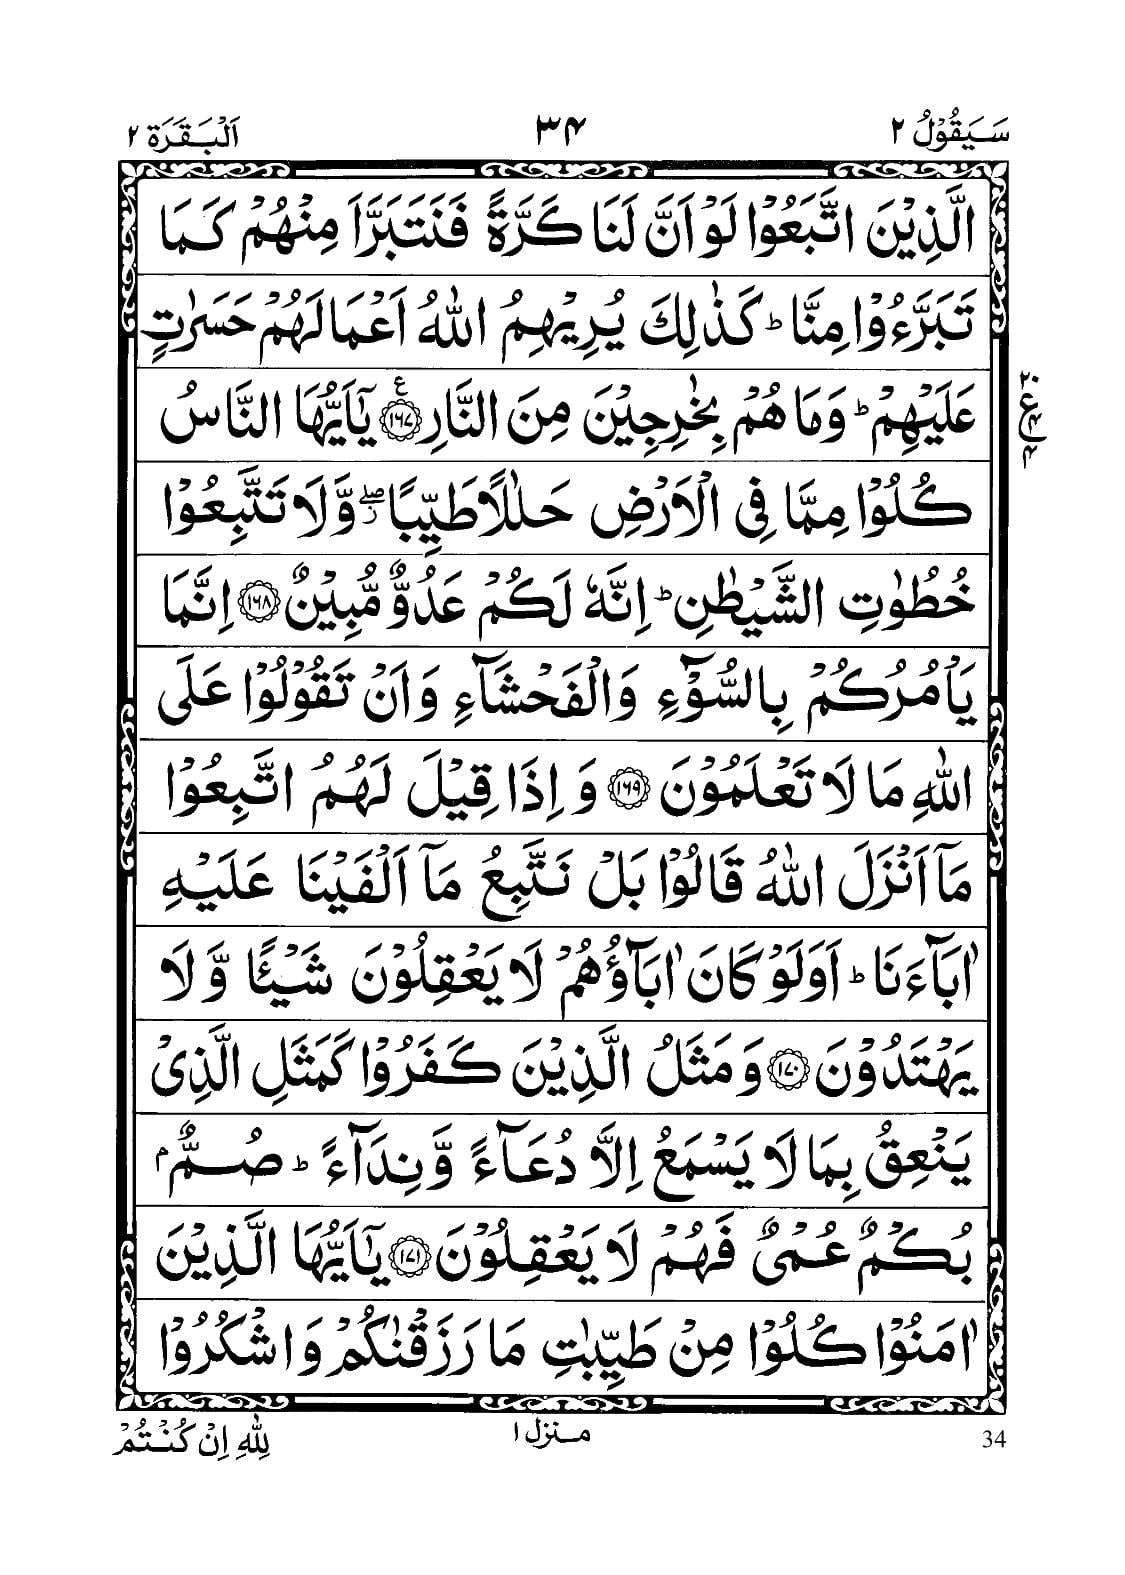 سَيَقُوۡلُ ٢ ٣۴ اَلۡبَقَرَة ٢
الَّذِيۡنَ اتَّبَعُوۡا لَوۡ اَنَّ لَنَا كَرَّةً فَنَتَبَرَّاَ مِنۡهُمۡ كَمَا
تَبَرَّءُوۡا مِنَّا ؕ كَذٰلِكَ يُرِيۡهِمُ اللّٰهُ اَعۡمَالَهُمۡ حَسَرٰتٍ
عَلَيۡهِمۡ ؕ وَمَا هُمۡ بِخٰرِجِيۡنَ مِنَ النَّارِ ﴿١٦٧﴾ ع يٰۤاَيُّهَا النَّاسُ
٢٠ ع ۴ ۴
كُلُوۡا مِمَّا فِى الۡاَرۡضِ حَلٰلًا طَيِّبًا ۖ وَّلَا تَتَّبِعُوۡا
خُطُوٰتِ الشَّيۡطٰنِ ؕ اِنَّهٗ لَكُمۡ عَدُوٌّ مُّبِيۡنٌ ﴿١٦٨﴾ اِنَّمَا
يَاۡمُرُكُمۡ بِالسُّوۡٓءِ وَالۡفَحۡشَآءِ وَاَنۡ تَقُوۡلُوۡا عَلَى
اللّٰهِ مَا لَا تَعۡلَمُوۡنَ ﴿١٦٩﴾ وَاِذَا قِيۡلَ لَهُمُ اتَّبِعُوۡا
مَاۤ اَنۡزَلَ اللّٰهُ قَالُوۡا بَلۡ نَتَّبِعُ مَاۤ اَلۡفَيۡنَا عَلَيۡهِ
اٰبَآءَنَا ؕ اَوَلَوۡ كَانَ اٰبَآؤُهُمۡ لَا يَعۡقِلُوۡنَ شَيۡئًا وَّلَا
يَهۡتَدُوۡنَ ﴿١٧٠﴾ وَمَثَلُ الَّذِيۡنَ كَفَرُوۡا كَمَثَلِ الَّذِىۡ
يَنۡعِقُ بِمَا لَا يَسۡمَعُ اِلَّا دُعَآءً وَّنِدَآءً ؕ صُمٌّۢ
بُكۡمٌ عُمۡىٌ فَهُمۡ لَا يَعۡقِلُوۡنَ ﴿١٧١﴾ يٰۤاَيُّهَا الَّذِيۡنَ
اٰمَنُوۡا كُلُوۡا مِنۡ طَيِّبٰتِ مَا رَزَقۡنٰكُمۡ وَاشۡكُرُوۡا
34 منزل ١ لِلّٰهِ اِنۡ كُنۡتُمۡ